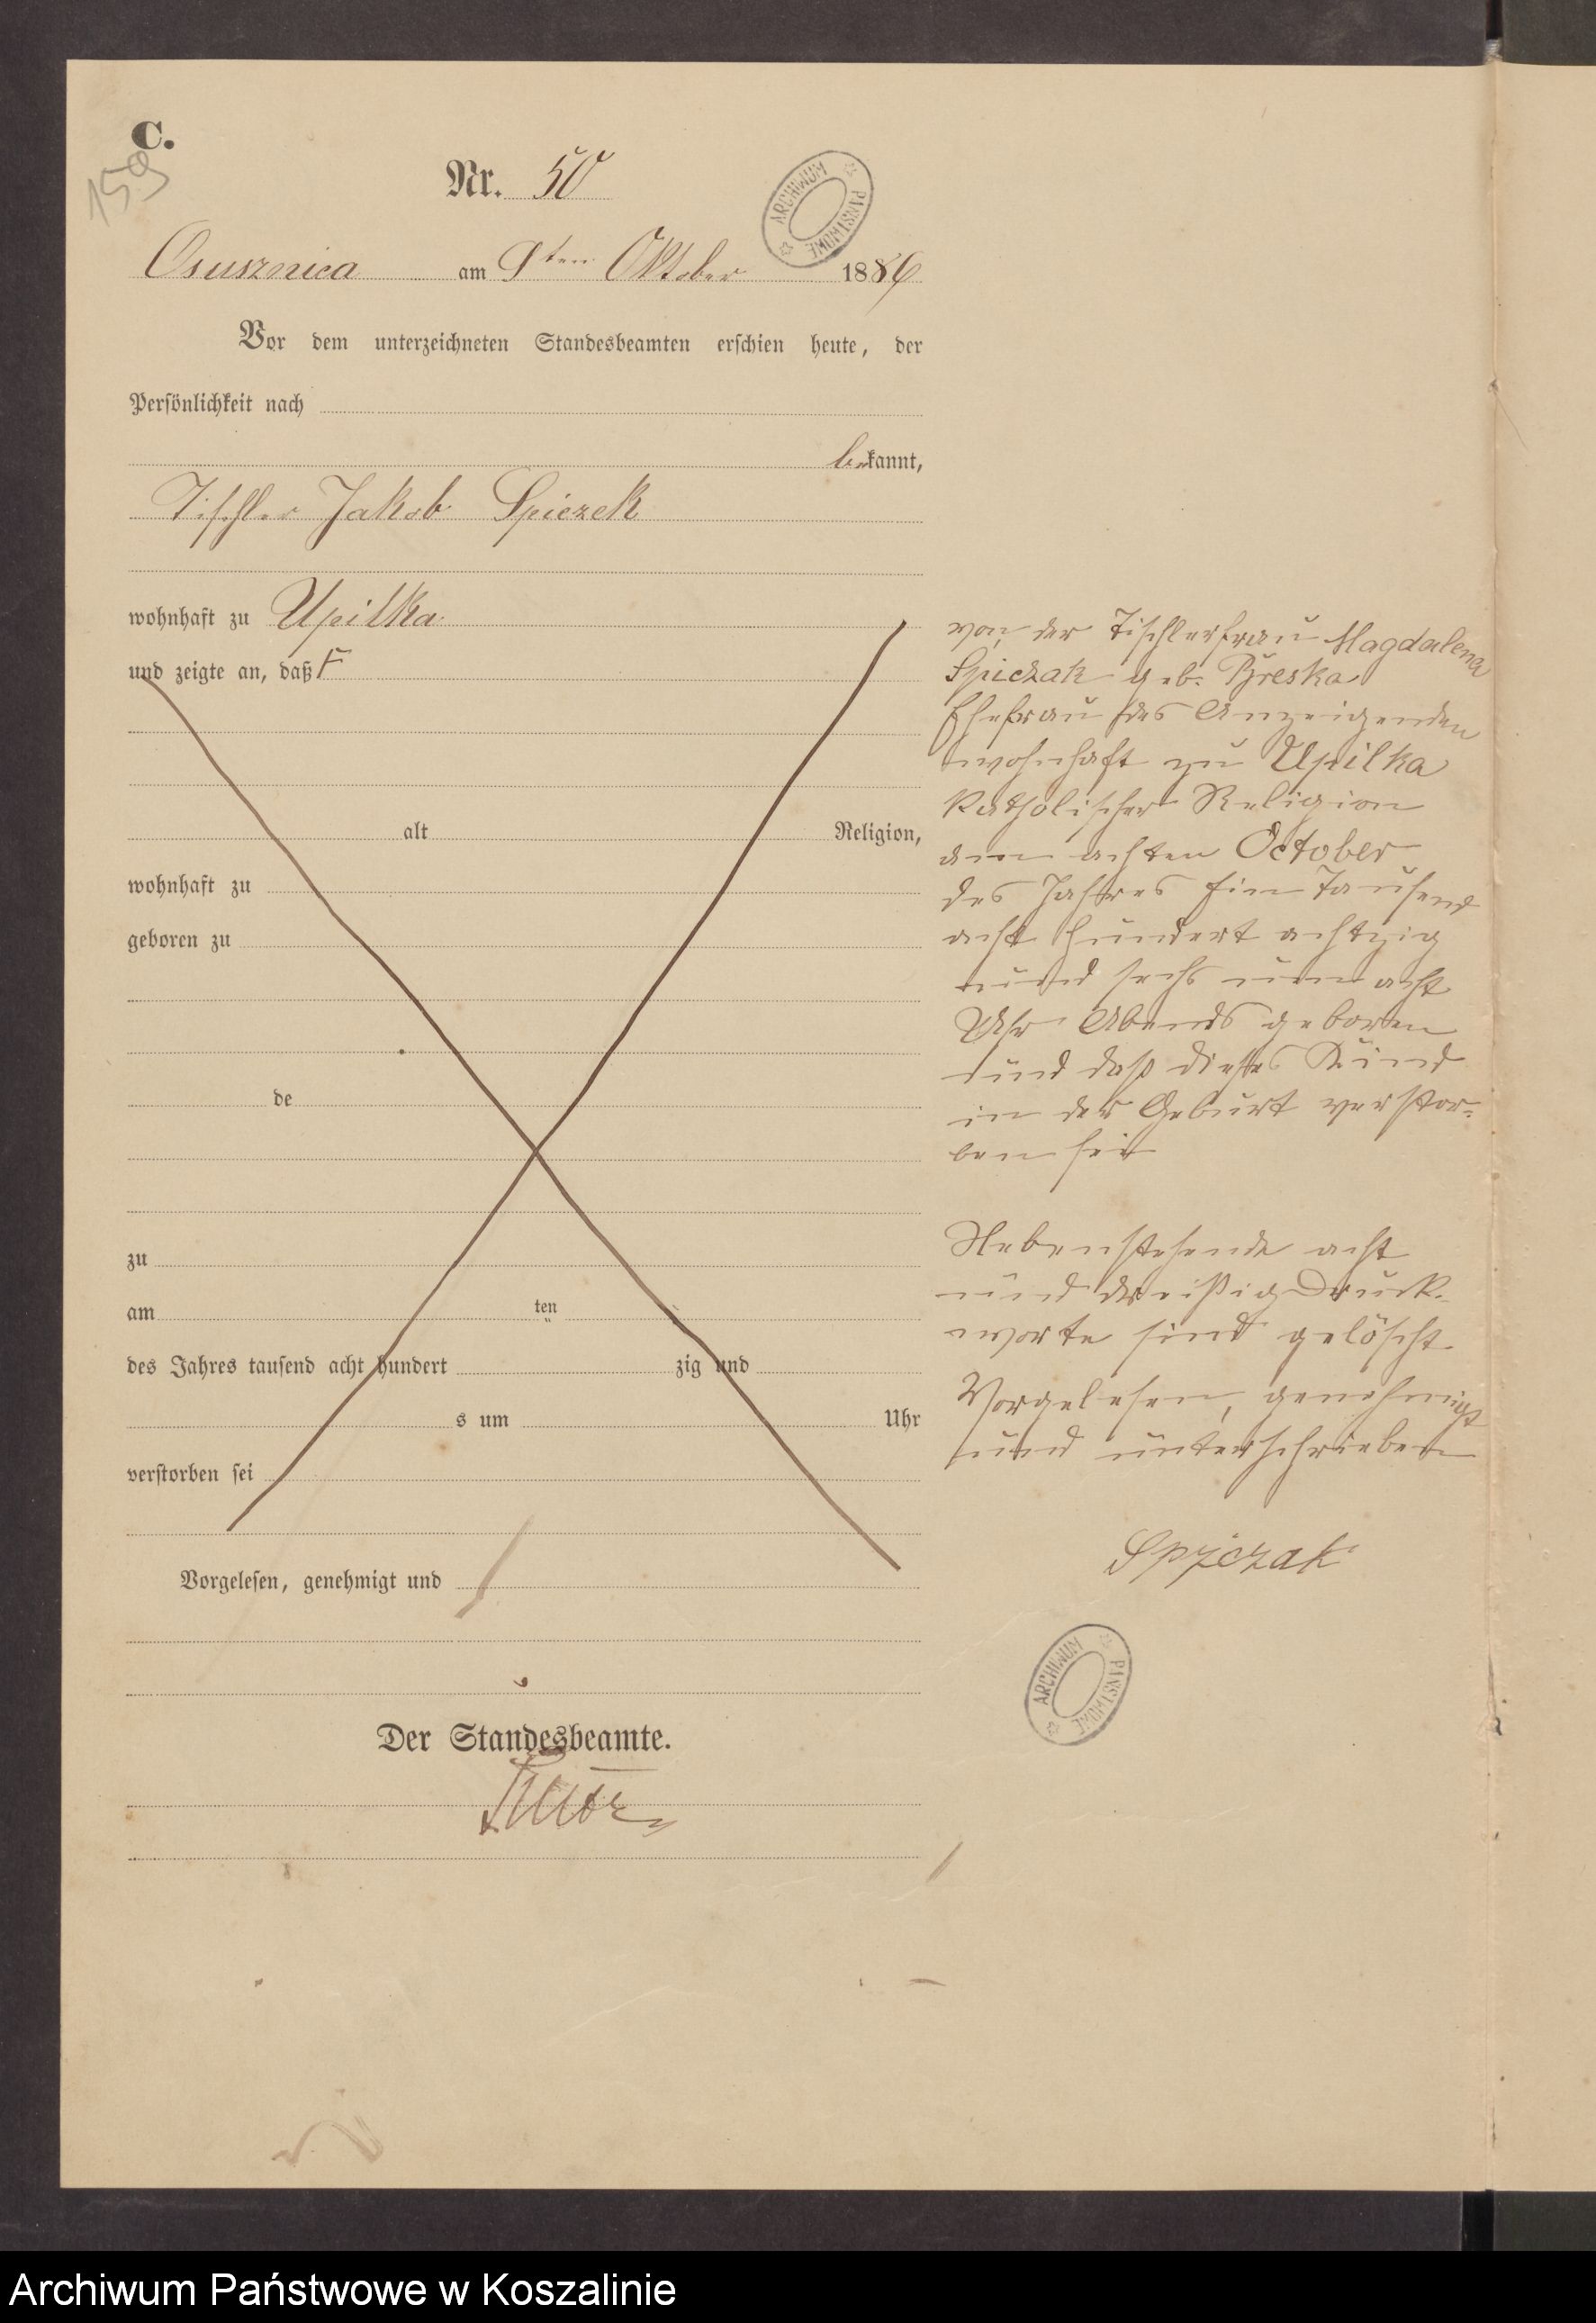 C.
159
Nr. 50
ARCHIWUM PAŃSTWOWE
Osusznica am 9ten Oktober 1886
Vor dem unterzeichneten Standesbeamten erschien heute, der
Persönlichkeit nach
bekannt,
Tischler Jakob Spiczek
wohnhaft zu Upilka
und zeigte an, daß
alt Religion,
wohnhaft zu
geboren zu
de
zu
am ten
des Jahres tausend acht hundert zig und
s um Uhr
verstorben sei
Vorgelesen, genehmigt und
Der Standesbeamte.
von der Tischlerfrau Magdalena
Spiczak geb.
Ehefrau des Anzeigenden
wohnhaft zu Upilka
katholischer Religion
am achten October
des Jahres Ein Tausend
acht hundert achtzig
und sechs um acht
Uhr Abends geboren
und daß dieses Kind
in der Geburt verstor-
ben sei
Nebenstehende acht
und dreißig Druck-
worte sind gelöscht
Vorgelesen, genehmigt
und unterschrieben
Spyczak
ARCHIWUM PAŃSTWOWE
Archiwum Państwowe w Koszalinie